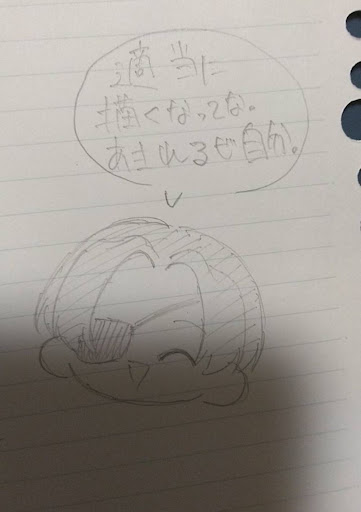 適当に
描くなってな。
あきれるぜ自分。